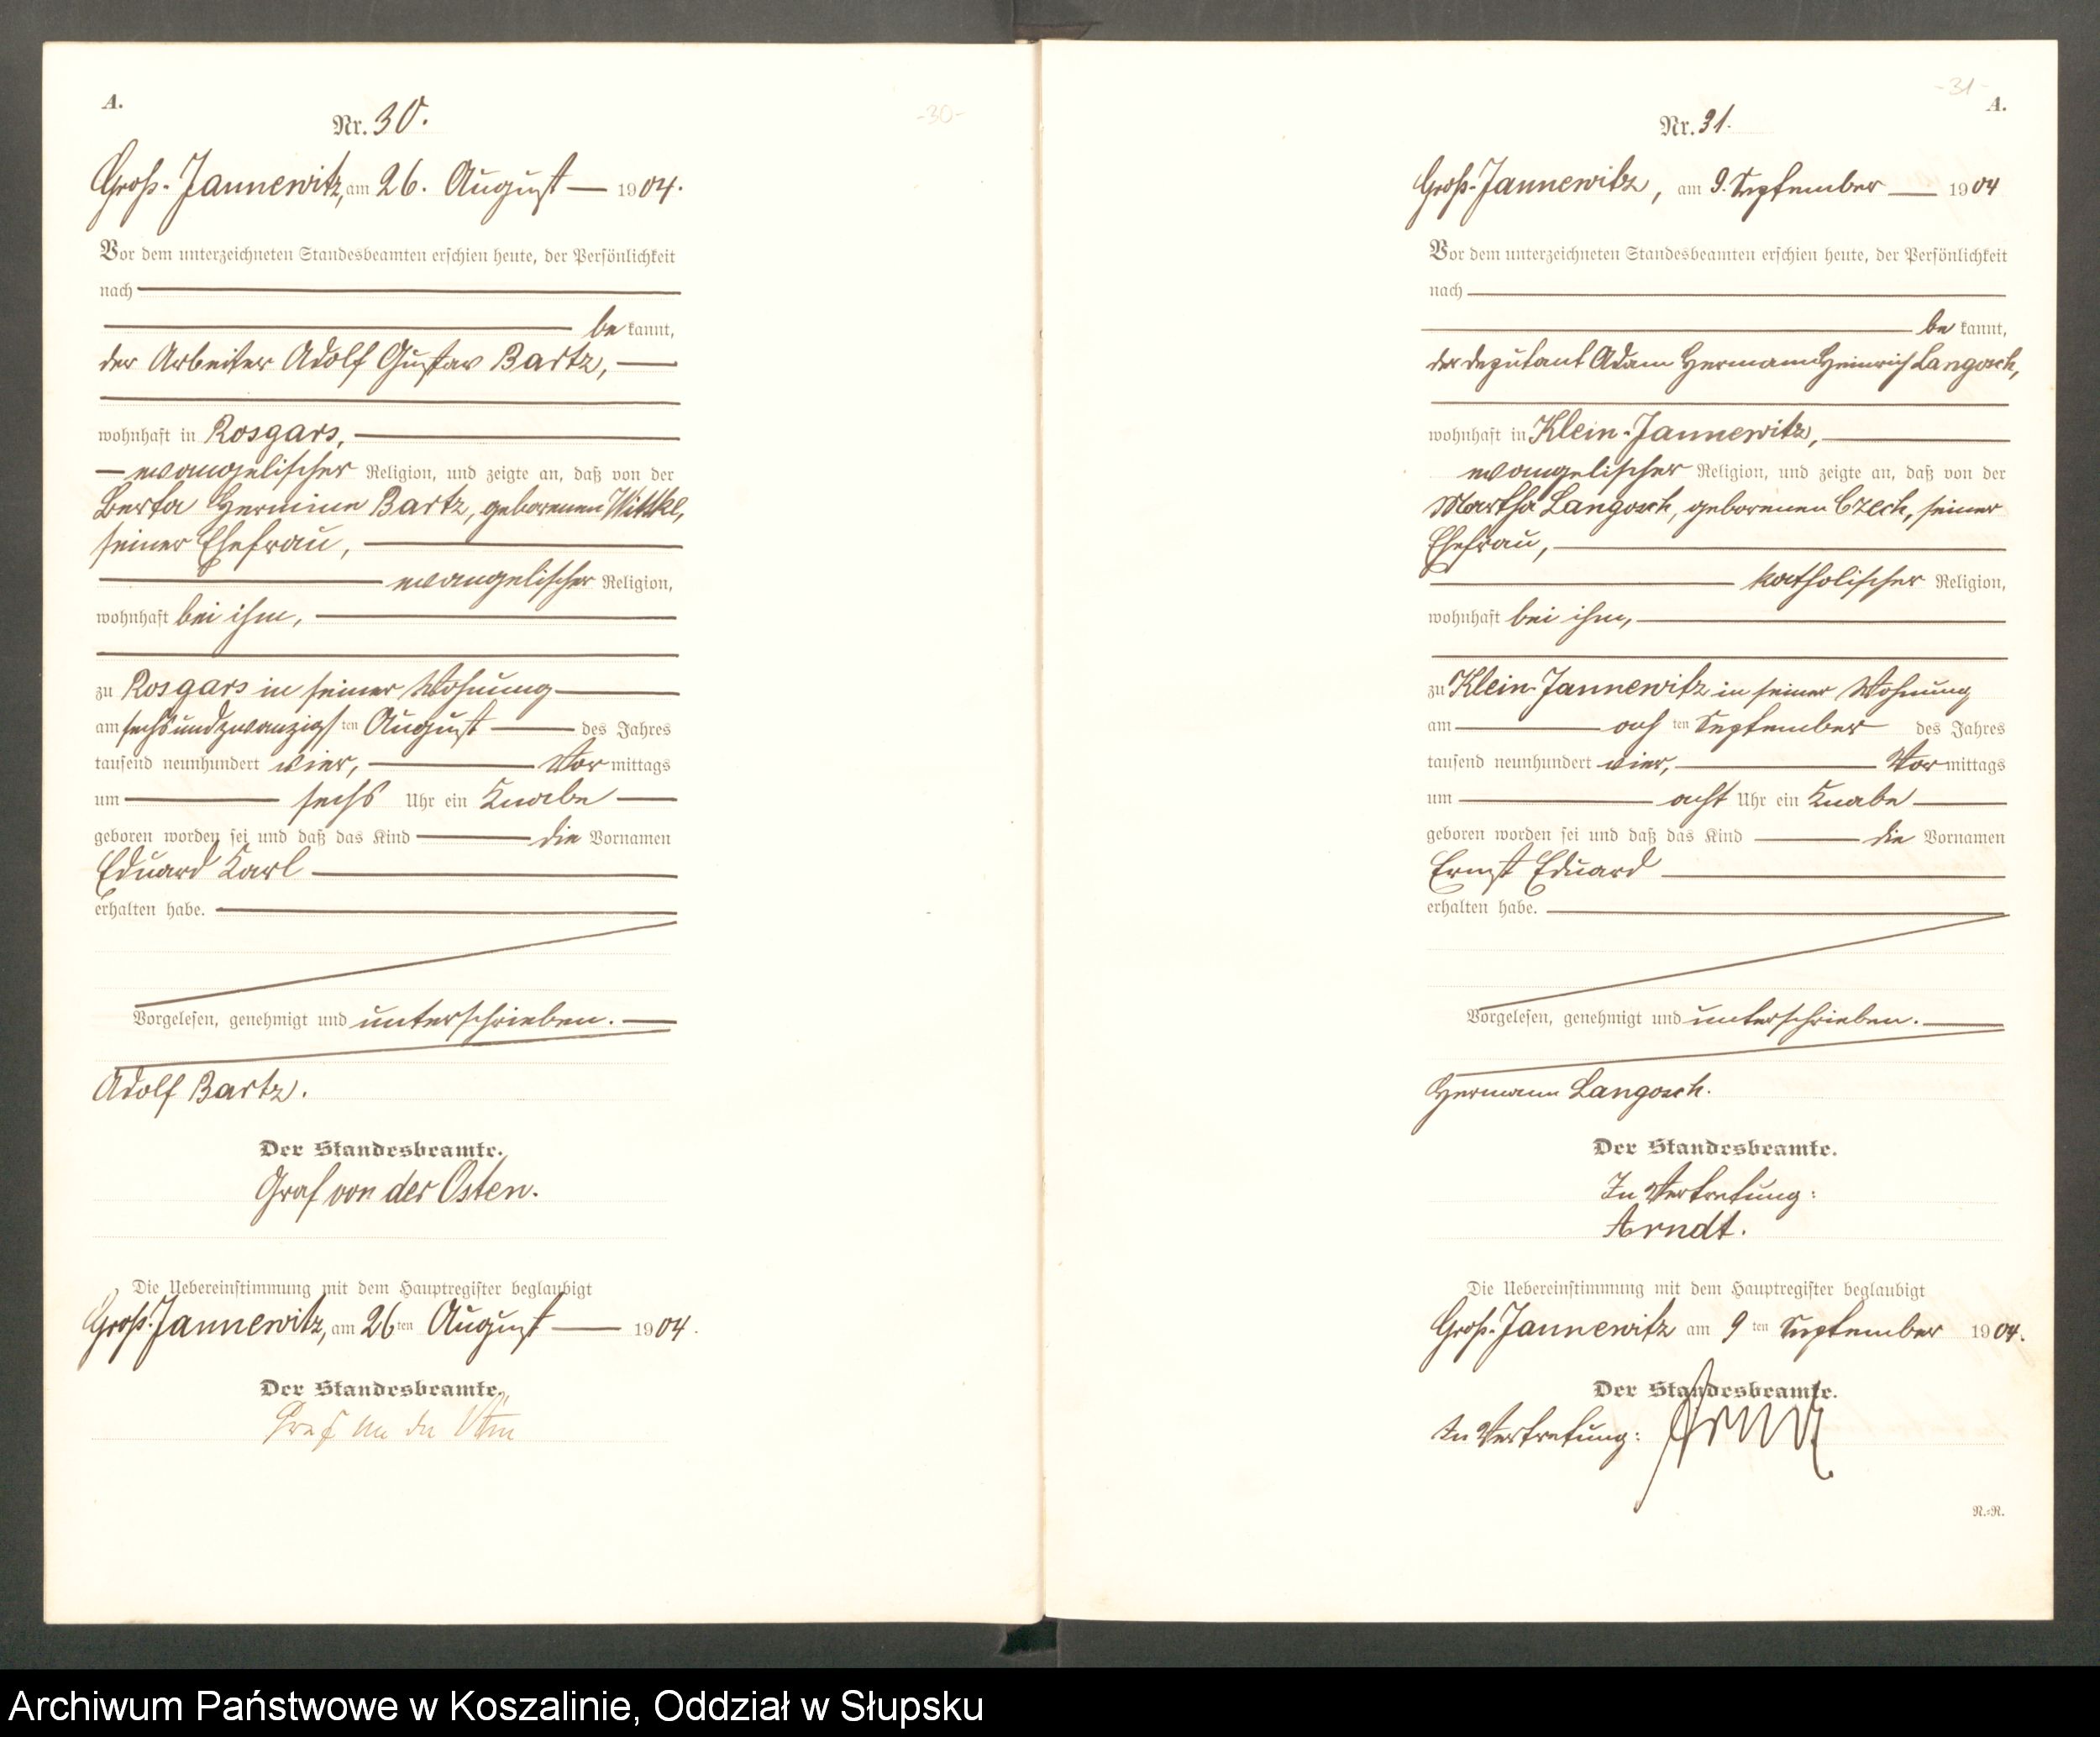 A.
-30-
Nr. 30.
Groß-Jannewitz, am 26. August 1904.
Vor dem unterzeichneten Standesbeamten erschien heute, der Persönlichkeit
nach
be kannt,
der Arbeiter Adolf Gustav Bartz,
wohnhaft in Rosgars,
evangelischer Religion, und zeigte an, daß von der
Berta Hermine Bartz, geborenen Wittke,
seiner Ehefrau,
evangelischer Religion,
wohnhaft bei ihm,
zu Rosgars in seiner Wohnung
am sechsundzwanzigsten August des Jahres
tausend neunhundert vier, Vormittags
um sechs Uhr ein Knabe
geboren worden sei und daß das Kind die Vornamen
Eduard Karl
erhalten habe.
Vorgelesen, genehmigt und unterschrieben.
Adolf Bartz.
Der Standesbeamte.
Graf von der Osten.
Die Uebereinstimmung mit dem Hauptregister beglaubigt
Groß-Jannewitz, am 26ten August 1904.
Der Standesbeamte.
Graf von der Osten
-31-
A.
Nr. 31.
Groß-Jannewitz, am 9. September 1904
Vor dem unterzeichneten Standesbeamten erschien heute, der Persönlichkeit
nach
be kannt,
der Deputant Adam Hermann Heinrich Langosch,
wohnhaft in Klein-Jannewitz,
evangelischer Religion, und zeigte an, daß von der
Martha Langosch, geborenen Czech, seiner
Ehefrau,
katholischer Religion,
wohnhaft bei ihm,
zu Klein-Jannewitz in seiner Wohnung
am achten September des Jahres
tausend neunhundert vier, Vormittags
um acht Uhr ein Knabe
geboren worden sei und daß das Kind die Vornamen
Ernst Eduard
erhalten habe.
Vorgelesen, genehmigt und unterschrieben.
Hermann Langosch.
Der Standesbeamte.
In Vertretung:
Arndt.
Die Uebereinstimmung mit dem Hauptregister beglaubigt
Groß-Jannewitz am 9ten September 1904.
Der Standesbeamte.
In Vertretung: Arndt
R.-R.
Archiwum Państwowe w Koszalinie, Oddział w Słupsku